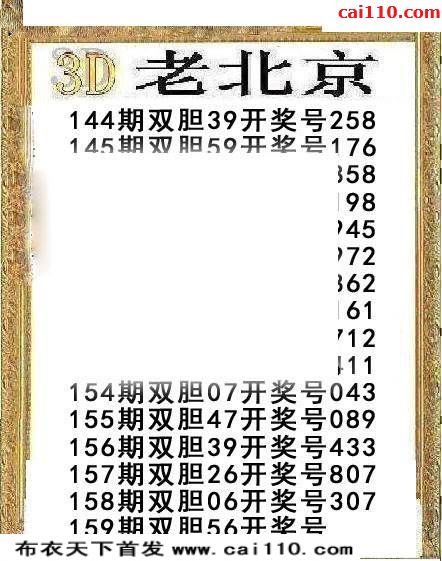 cai110.com
3D 老北京
144期双胆39开奖号258
145期双胆59开奖号176
858
198
945
972
862
161
712
411
154期双胆07开奖号043
155期双胆47开奖号089
156期双胆39开奖号433
157期双胆26开奖号807
158期双胆06开奖号307
159期双胆56开奖号
布衣天下首发 www.cai110.com